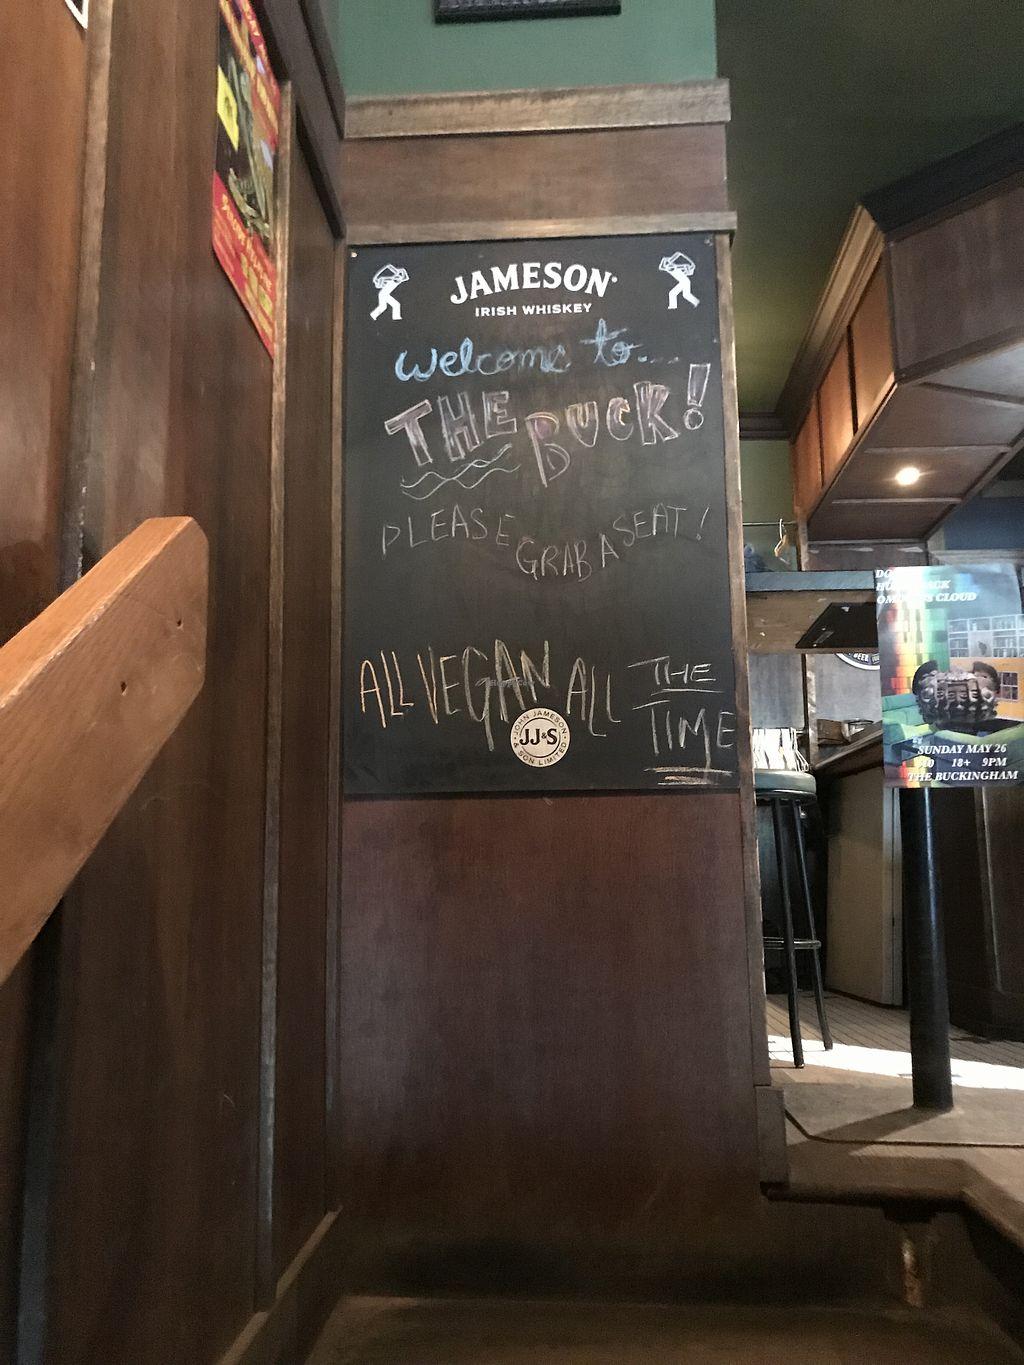 JAMESON
IRISH WHISKEY
Welcome to...
THE BUCK!
PLEASE GRAB A SEAT!
ALL VEGAN ALL THE TIME
JOHN JAMESON
JJ&S
& SON LIMITED
CLOUD
SUNDAY MAY 26
18+ 9PM
THE BUCKINGHAM
BEER